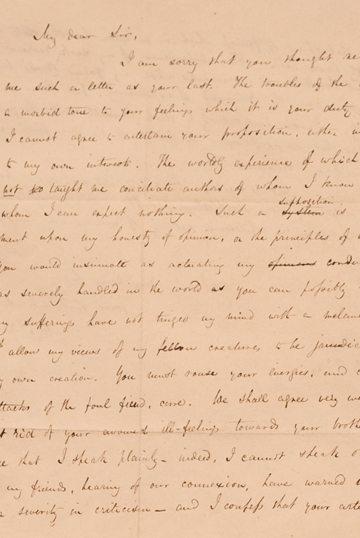 My dear Sir,
I am sorry that you thought
me such a letter as your last. The troubles of the
a morbid tone to your feelings which it is your duty
I cannot agree to entertain your proposition, either
to my own interest. The worldly experience of which
not so taught me conciliate authors of whom I know
whom I can expect nothing. Such a supposition is
ment upon my honesty of opinion, or the principles of
you would insinuate as actuating my opinions
as severely handled in the world as you can possibly
my sufferings have not tinged my mind with a
I allow my views of my fellow creatures to be
my own creation. You must rouse your energies, and
attacks of the foul fiend, care. We shall agree very
rid of your avowed ill-feelings towards your
that I speak plainly – indeed, I cannot speak
my friends, hearing of our connexion, have warned
severity in criticism — and I confess that your